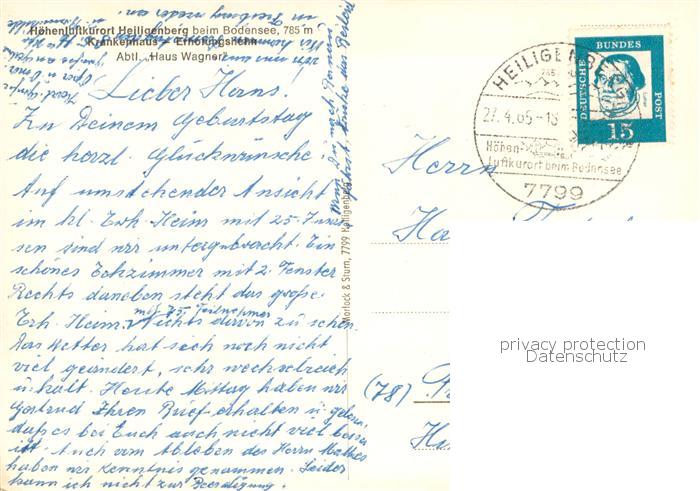 Höhenluftkurort Heiligenberg beim Bodensee, 785 m
Krankenhaus - Erholungsheim
Abtl. „Haus Wagner“
Lieber Hans!
Zu Deinem Geburtstag
die herzl. Glückwünsche.
Auf umstehender Ansicht
im kl. Erh. Heim mit 25 Insas-
sen sind wir untergebracht. Ein
schönes Eckzimmer mit 2 Fenster
Rechts daneben steht das große
Erh. Heim mit 75 Teilnehmer
Nichts davon zu sehen.
Das Wetter hat sich noch nicht
viel geändert, sehr wechselreich
u. kalt. Heute Mittag haben wir
Gertrud Ihren Brief erhalten u. gelesen
daß es bei Euch auch nicht viel besser
ist. Auch vom Ableben des Herrn
haben wir Kenntnis genommen. Leider
kann ich nicht zur Beerdigung.
Morlock & Sturn, 7799 Heiligenberg
HEILIGENBERG
27.4.65-18
Höhen-
Luftkurort beim Bodensee
7799
DEUTSCHE BUNDES POST
15
Herrn
(78)
privacy protection
Datenschutz